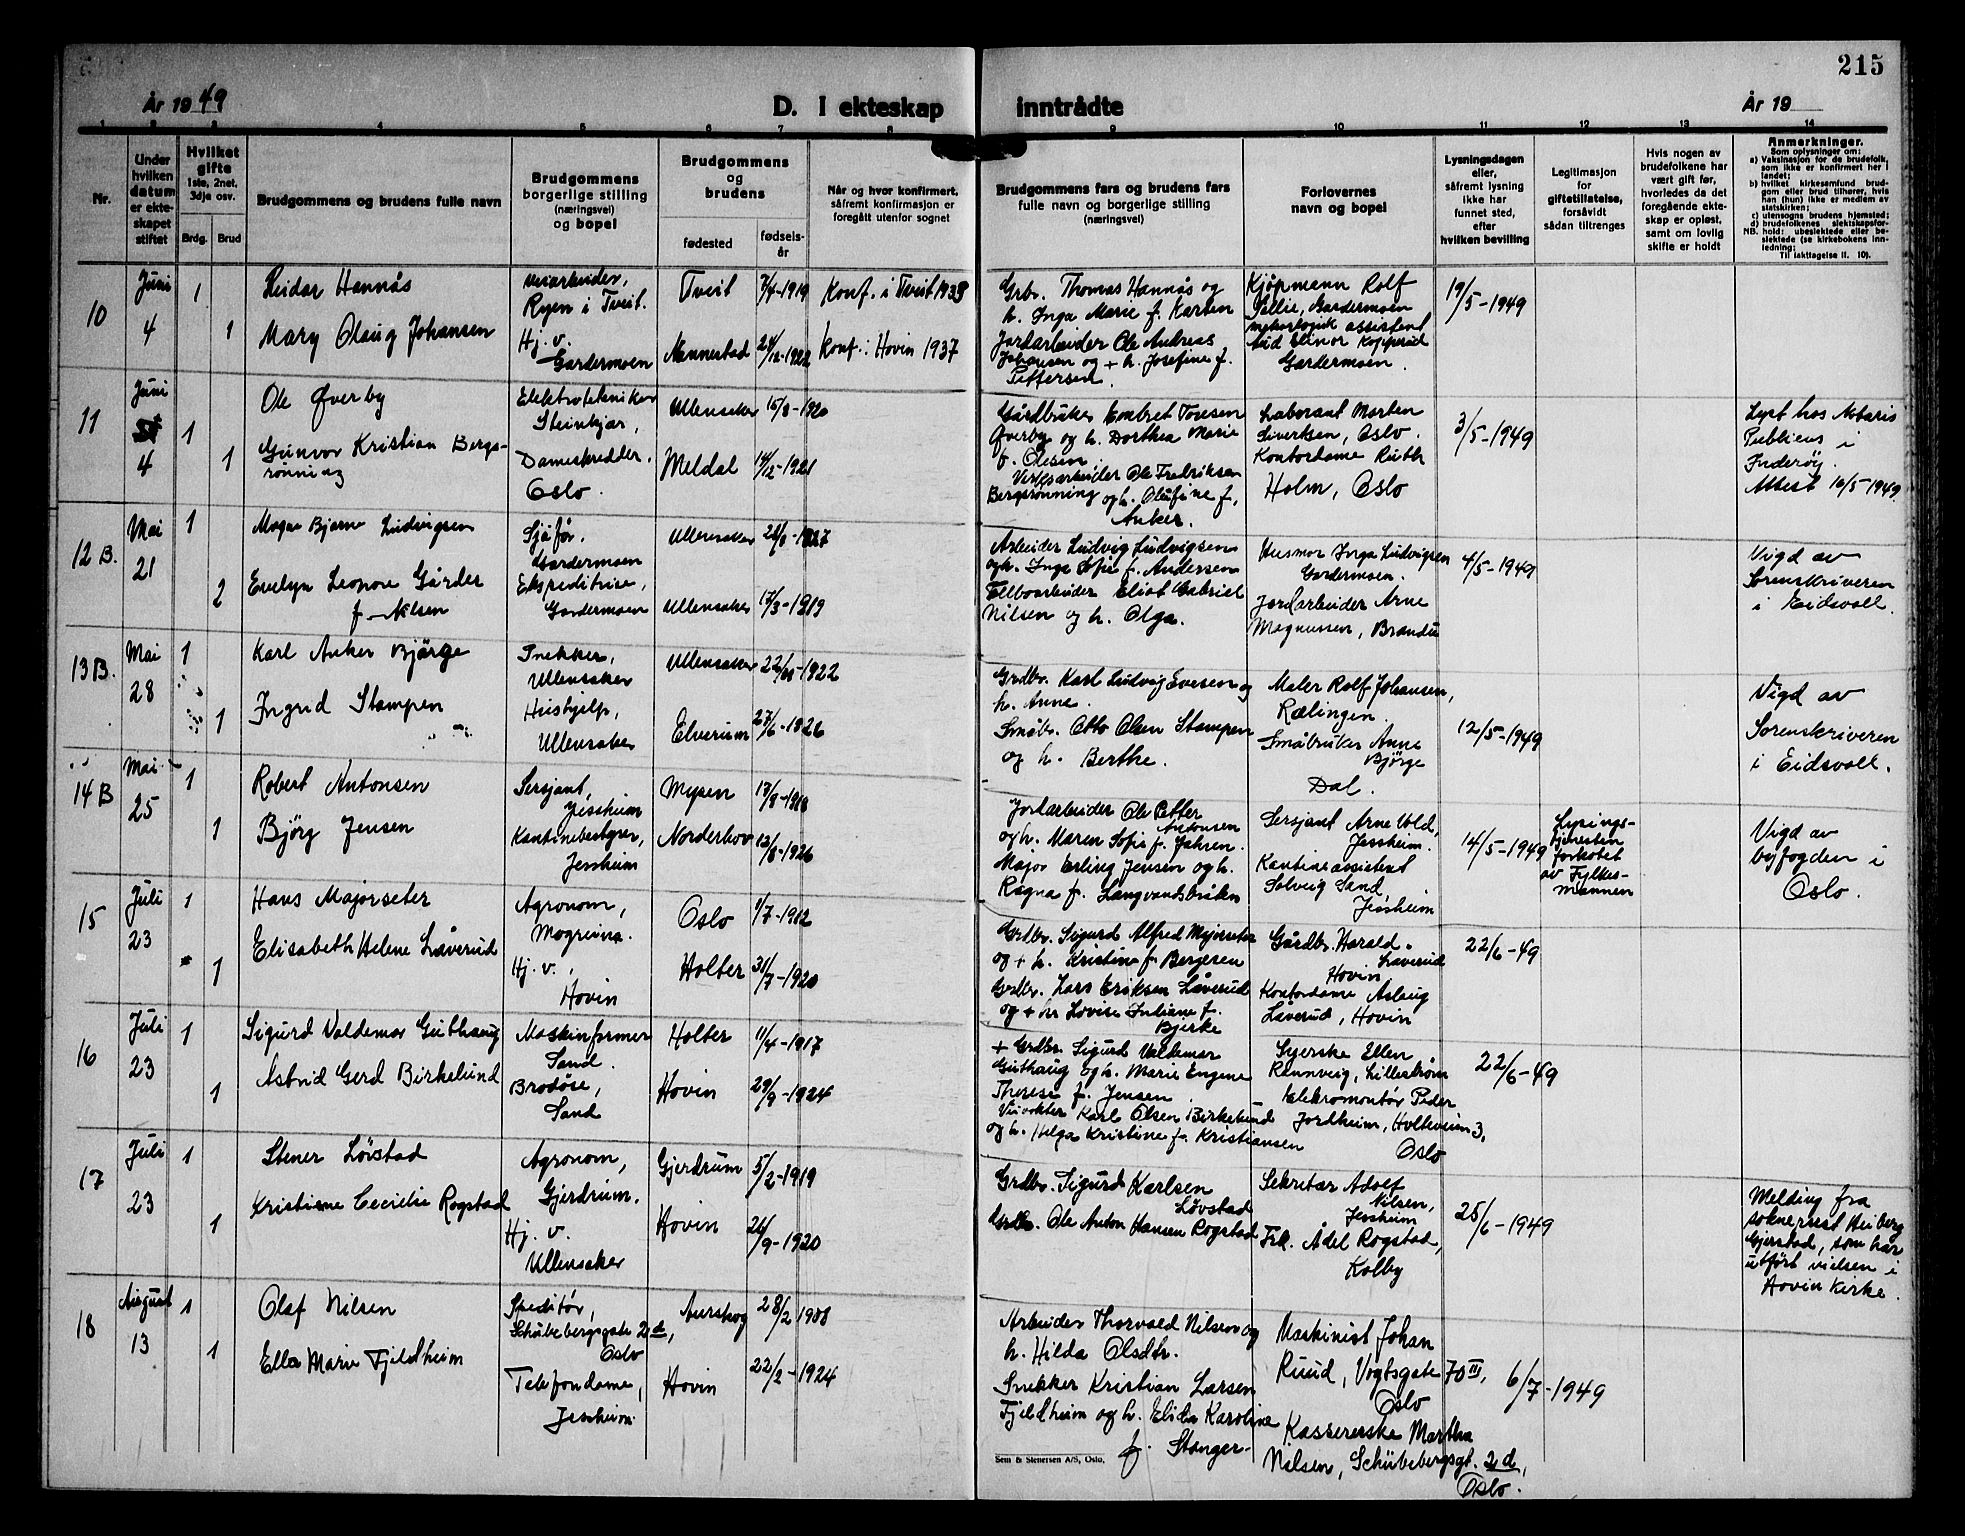 215
År 1949
D. I ekteskap inntrådte
År 19
1 2 3 4 5 6 7 8 9 10 11 12 13 14
Nr.
Under
hvilken
datum
er ekte-
skapet
stiftet
Hvilket
gifte
1ste, 2net,
3dje osv.
Brdg. Brud
Brudgommens og brudens fulle navn
Brudgommens
borgerlige stilling
(næringsvei)
og bopel
Brudgommens
og
brudens
fødested
fødsels-
år
Når og hvor konfirmert,
såfremt konfirmasjon er
foregått utenfor sognet
Brudgommens fars og brudens fars
fulle navn og borgerlige stilling
(næringsvei)
Forlovernes
navn og bopel
Lysningsdagen
eller,
såfremt lysning
ikke har
funnet sted,
efter
hvilken bevilling
Legitimasjon
for
giftetillatelse,
forsåvidt
sådan tiltrenges
Hvis nogen av
brudefolkene har
vært gift før,
hvorledes da det
foregående ekte-
skap er opløst,
samt om lovlig
skifte er holdt
Anmerkninger.
Som oplysninger om:
a) Vaksinasjon for de brudefolk,
som ikke er konfirmert her i
landet;
b) hvilket kirkesamfund brud-
gom eller brud tilhører, hvis
han (hun) ikke er medlem av
statskirken;
c) utensogns brudens hjemsted;
d) brudefolkenes slektskapsfor-
hold: ubeslektede eller be-
slektede (se kirkebokens inn-
ledning;
NB.
Til iakttagelse ll. 10).
10
Juni
4
1
Reidar Hannås
Veiarbeider,
Ryen i Tveit.
Tveit 7/4-1919
Konf. i Tveit 1933
1
Mary Olaug Johansen
Hj. v.
Gardermoen
Nannestad 24/12-1922
Konf. i Hovin 1937
Grbr. Thomas Hannås og
h. Inga Marie f. Karlsen
Jordarbeider Ole Andreas
Johansen og + h. Josefine f.
Pettersen.
Kjøpmann Rolf
Sellie, Gardermoen
assistent
Elinor Kopperud
Gardermoen.
19/5-1949
11
Juni
4
1
Ole Øverby
Elektrotekniker
Steinkjær,
Ullensaker 15/8-1920
1
Gunvor Kristian Bergs-
rønning
Dameskredder.
Oslo.
Meldal 14/12-1921
Gårdbruker Embret Toresen
Øverby og h. Dorthea Marie
f. Olesen
Verksarbeider Ole Fredriksen
Bergsrønning og h. Olufine f.
Anker.
Laborant Morten
Sivertsen, Oslo.
Kontordame Ruth
Holm, Oslo
3/5-1949
Lyst hos Notarius
Publicus i
Inderøy.
Attest 10/5 1949
12 B.
Mai
21
1
Magne Bjarne Ludvigsen
Sjåfør.
Gardermoen
Ullensaker 24/8-1927
2
Evelyn Leonore Gårder
f. Nilsen
Ekspeditrise,
Gardermoen
Ullensaker 17/3-1919
Arbeider Ludvig Ludvigsen
og h. Inga Sofie f. Andersen
Fellboarbeider Eliot Gabriel
Nilsen og h. Olga.
Husmor Inga Ludvigsen
Gardermoen.
Jordarbeider Arne
Magnussen, Brandu
4/5-1949
Vigd av
Sorenskriveren
i Eidsvoll.
13 B.
Mai
28
1
Karl Anker Bjørge
Snekker,
Ullensaker
Ullensaker 22/10-1922
1
Ingrid Stampen
Hushjelp,
Ullensaker
Elverum 27/6-1926
Grdbr. Karl Ludvig Evesen og
h. Anne.
Småbr. Otto Olsen Stampen
og h. Berthe.
Maler Rolf Johansen,
Rælingen.
Småbruker Anne
Bjørge
Dal.
12/5-1949
Vigd av
Sorenskriveren
i Eidsvoll.
14 B
Mai
25
1
Robert Antonsen
Sersjant,
Jessheim
Mysen 17/8-1918
1
Bjørg Jensen
Kantinebestyrer,
Jessheim
Norderhov 13/8-1926
Jordarbeider Ole Petter
Antonsen
og h. Maren Sofie f. Jahren.
Major Erling Jensen og h.
Ragna f. Langvandsbråten
Sersjant Arne Vold,
Jessheim.
Kantineassistent
Solveig Sand,
Jessheim
14/5-1949
Lysings-
tjenesten
forkotet
av Fylkes-
mannen
Vigd av
byfogden i
Oslo.
15
Juli
23
1
Hans Majorseter
Agronom,
Mogreina.
Oslo 1/7-1912
1
Elisabeth Helene Låverud
Hj. v.,
Hovin
Holter 31/7-1920
Grdbr. Sigurd Alfred Myorseter
og + h. Kristine f. Bergesen
Grdbr. Lars Eriksen Låverud
og + h. Lovise Juliane f.
Bjerke
Gårdbr. Harald
Laverud
Hovin
Kontordame Aslaug
Låverud, Hovin
22/6-49
16
Juli
23
1
Sigurd Valdemar Guthaug
Maskinformer
Sand.
Holter 11/4-1917
1
Astrid Gerd Birkelund
Brodøse,
Sand
Hovin 29/9-1924
+ Grdbr. Sigurd Valdemar
Guthaug og h. Marie Engene
Therese f. Jensen
Veivokter Karl Olsen Birkelund
og h. Helga Kristine f. Kristiansen
Syerske Ellen
Rannveig, Lillestrøm
Elekromontør Peder
Jordheim, Holteveien 3,
Oslo
22/6-49
17
Juli
23
1
Stener Løvstad
Agronom,
Gjerdrum.
Gjerdrum 5/2-1919
1
Kristiane Cecilie Rogstad
Hj. v.
Ullensaker
Hovin 26/9-1920
Grdbr. Sigurd Karlsen
Løvstad
Grdbr. Ole Anton Hansen Rogstad
Sekretær Adolf
Nilsen,
Jessheim
Frk. Ådel Rogstad,
Kolby
25/6-1949
Melding fra
sokneprest Heiberg
Gjerstad, som har
utført vielsen i
Hovin kirke.
18
August
13
1
Olaf Nilsen
Speditør,
Schübebergsgate 2d,
Oslo
Aurskog 28/2 1908
1
Ella Marie Fjeldheim
Telefondame,
Jessheim
Hovin 22/2-1924
Arbeider Thorvald Nilsen og
h. Hilda Olsdtr.
Snekker Kristian Larsen
Fjeldheim og h. Elida Karoline
f. Stanger
Maskinist Johan
Ruud, Vogtsgate 70 III,
Oslo
Kassererske Martha
Nilsen, Schübebergsgt. 2d,
Oslo.
6/7-1949
Sem & Stenersen A/S, Oslo.